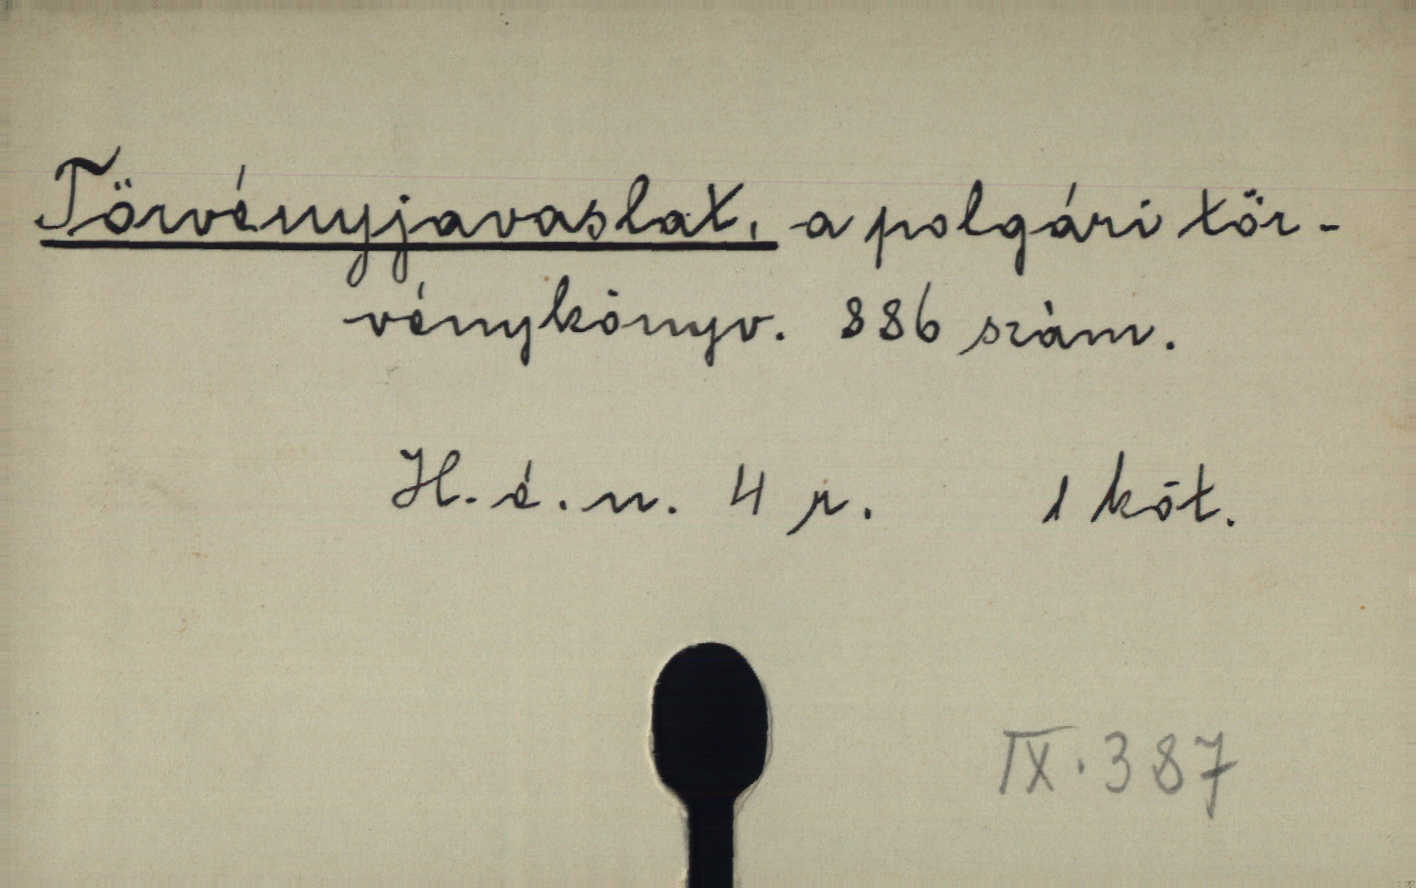 Törvényjavaslat, a polgári tör-
vénykönyv. 886 szám.
H. é. n. 4 r. 1 köt.
IX. 387